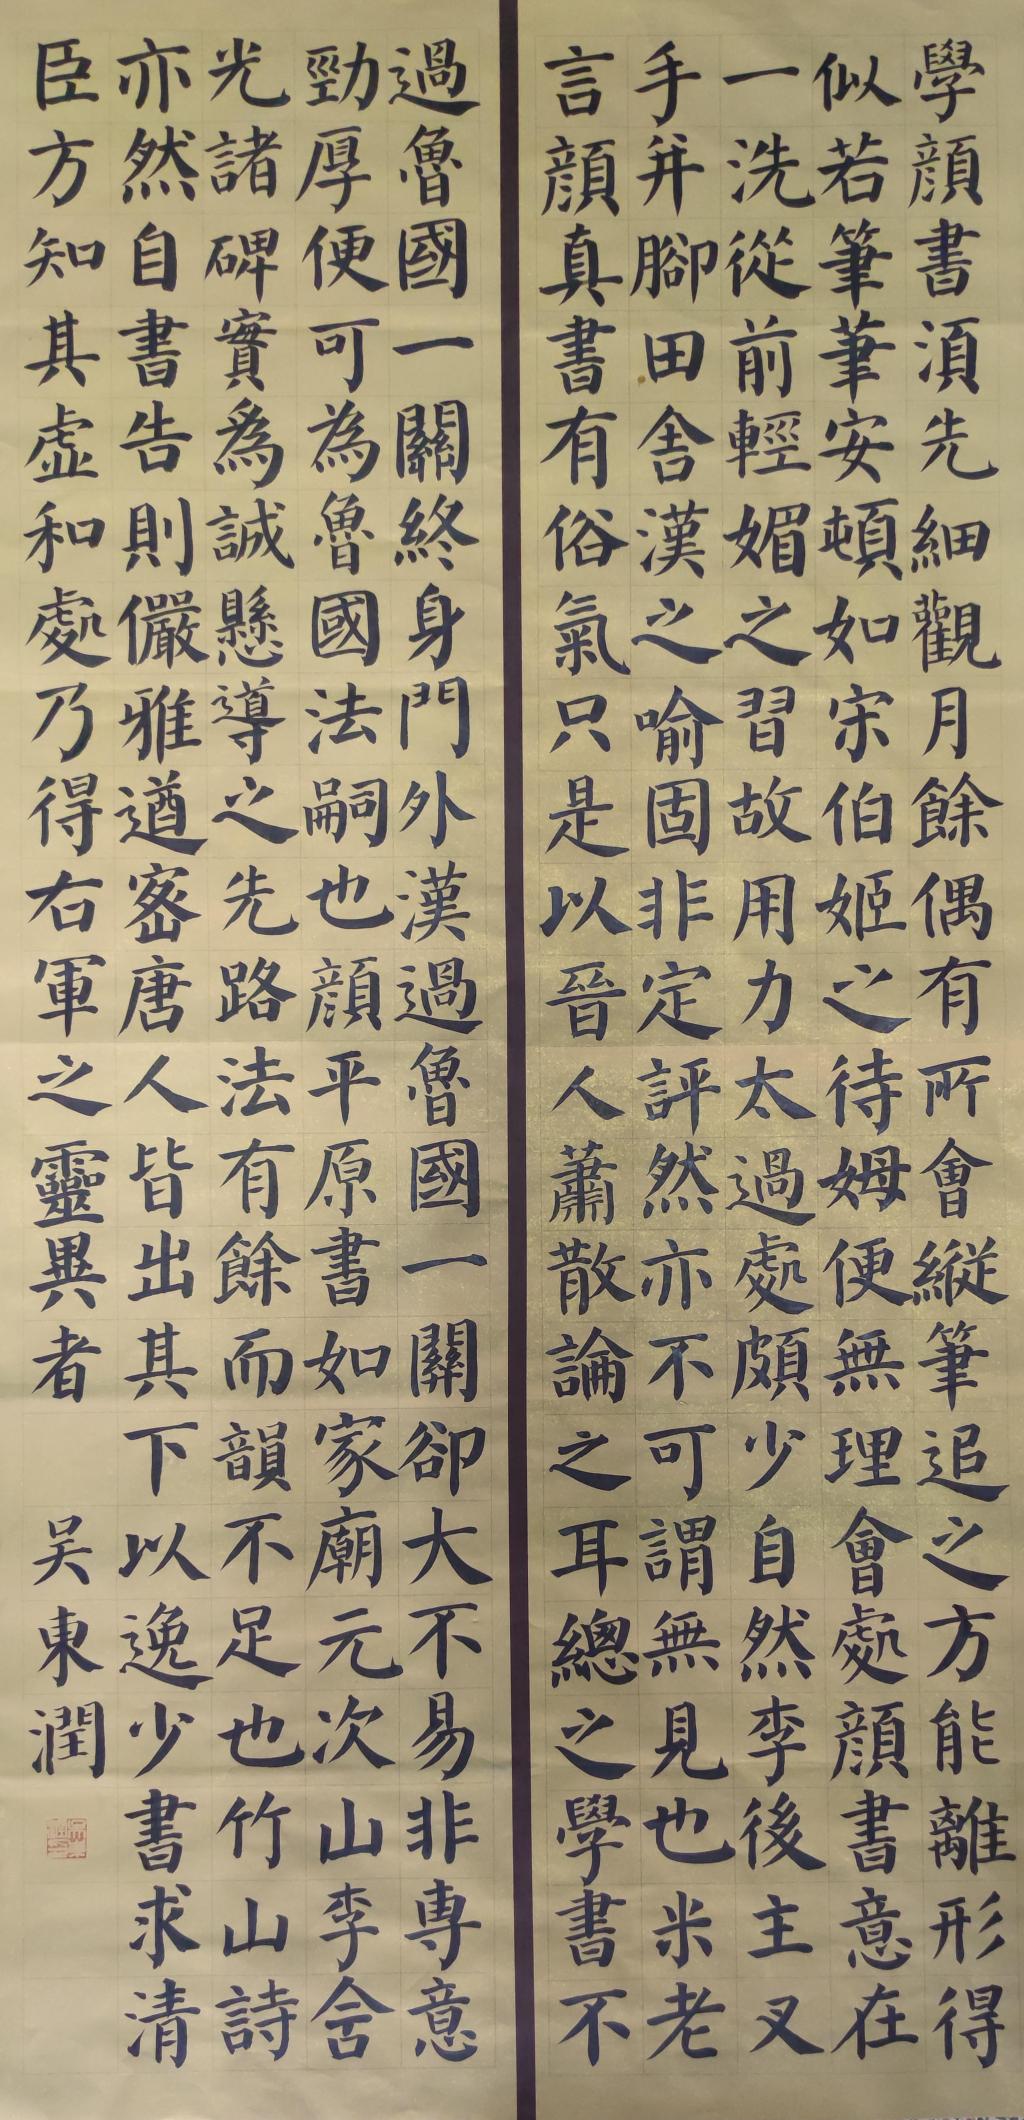 學顔書須先細觀月餘偶有所會縱筆追之方能離形得
似若筆筆安頓如宋伯姬之待姆便無理會處顔書意在
一洗從前輕媚之習故用力太過處頗少自然李後主叉
手并腳田舍漢之喻固非定評然亦不可謂無見也米老
言顔真書有俗氣只是以晉人蕭散論之耳總之學書不
過魯國一關終身門外漢過魯國一關卻大不易非專意
勁厚便可為魯國法嗣也顔平原書如家廟元次山李含
光諸碑實爲誠懸導之先路法有餘而韻不足也竹山詩
亦然自書告則儼雅遒密唐人皆出其下以逸少書求清
臣方知其虛和處乃得右軍之靈異者
吴東潤